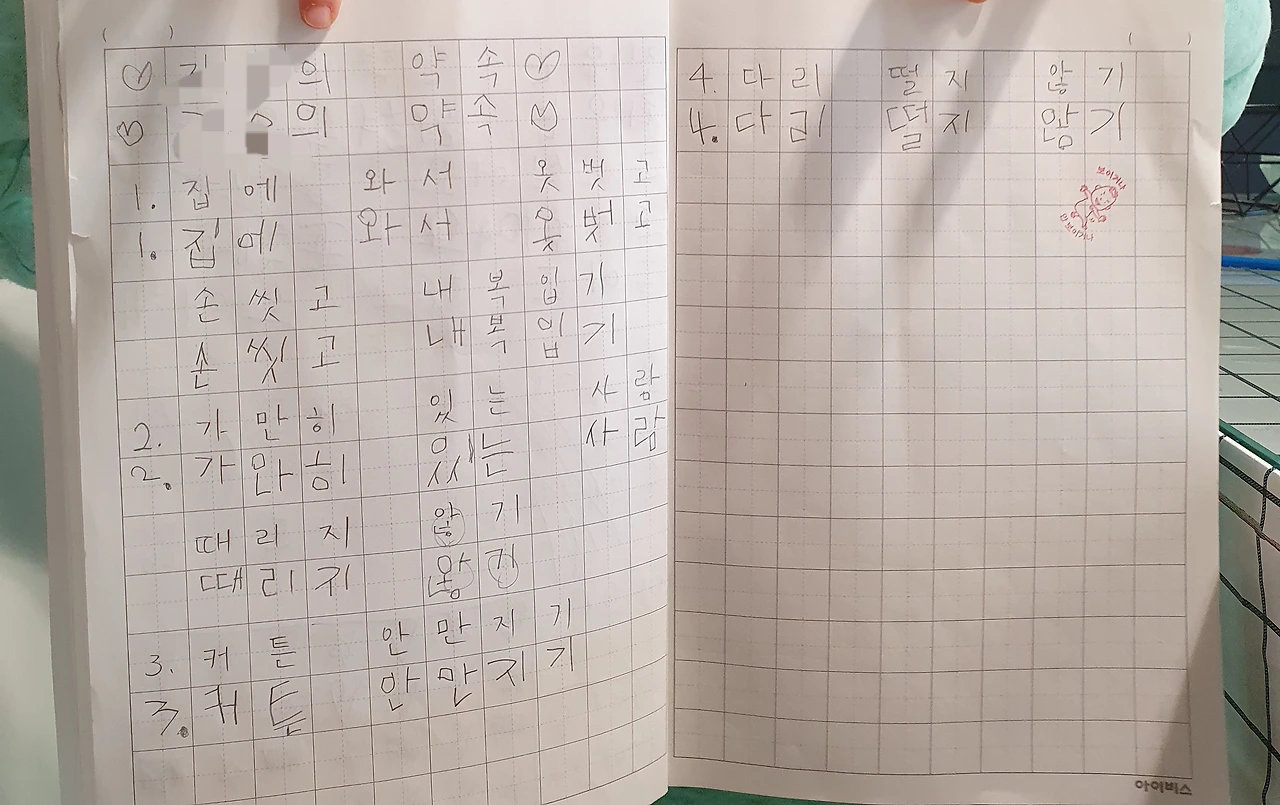 의 약속
의 약속
1. 집에 와서 옷 벗고
1. 집에 와서 옷 벗고
손 씻고 내복입기
손 씻고 내복입기
2. 가만히 있는 사람
2. 가만히 있는 사람
때리지 않기
때리지 않기
3. 커튼 안만지기
3. 커튼 안만지기
4. 다리 떨지 않기
4. 다리 떨지 않기
아이비스